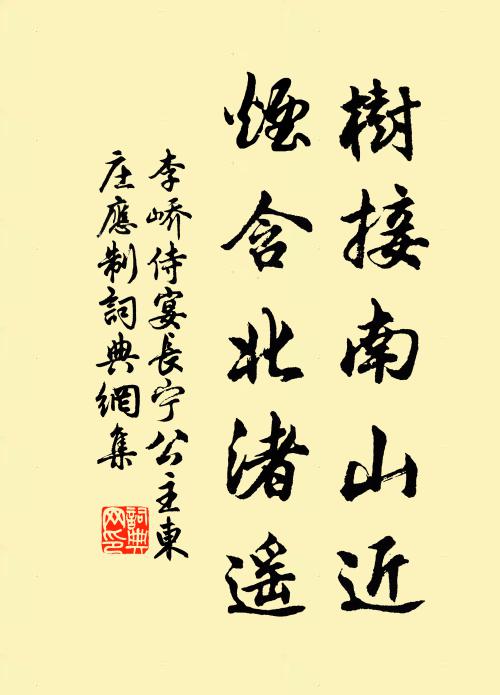 樹接南山近
煙含北渚遥
李嶠侍宴長宁公主東
庄應制詞典網集
詞典
网印